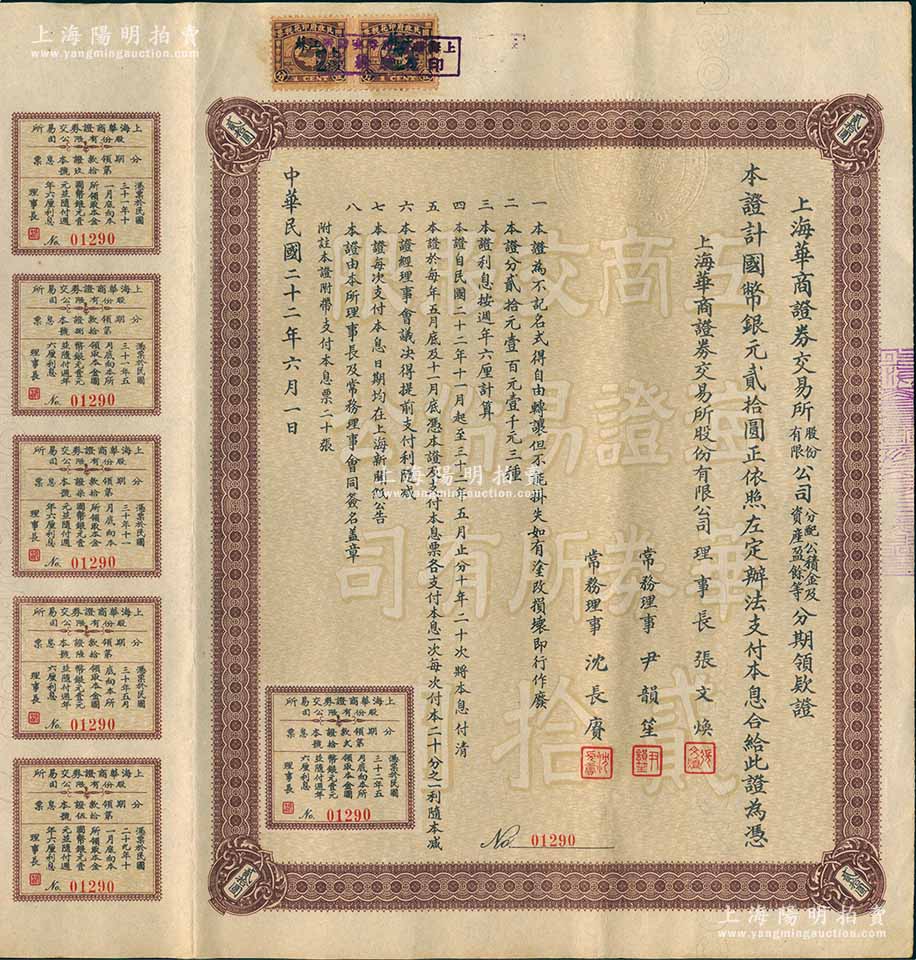 上海陽明拍賣
www.yangmingauction.com
上海華商證券交易所股份有限公司分配公積金及資產盈餘等分期領欵證
本證計國幣銀元貳拾圓正依照左定辦法支付本息合給此證為憑
上海華商證券交易所股份有限公司理事長張文煥
常務理事尹韻笙
常務理事沈長賡
一 本證為不記名式得自由轉讓但不能掛失如有塗改損壞即行作廢
二 本證分貳拾元壹百元壹千元三種
三 本證利息按週年六厘計算
四 本證自民國二十二年十一月起至三十二年五月止分十年二十次將本息付清
五 本證於每年五月底及十一月底憑本證及支付本息票各支付本息一次每次付本二十分之一利隨本減
六 本證經理事會議決得提前支付利隨本減
七 本證每次支付本息日期均在上海新聞紙公告
八 本證由本所理事長及常務理事會同簽名蓋章
附註本證附帶支付本息票二十張
中華民國二十二年六月一日
No 01290
貳拾圓
貳拾圓
貳拾圓
貳拾圓
1 CENT
1 CENT
上海華商證券交易所
股份有限公司
分期領款證本息票
第拾玖號
憑票於民國
三十一年十
一月底向本
所領取本金
國幣銀元壹
元並隨付週
年六厘利息
理事長
No. 01290
上海華商證券交易所
股份有限公司
分期領款證本息票
第拾捌號
憑票於民國
三十一年五
月底向本所
領取本金國
幣銀元壹元
並隨付週年
六厘利息
理事長
No. 01290
上海華商證券交易所
股份有限公司
分期領款證本息票
第拾柒號
憑票於民國
三十年十一
月底向本
所領取本金
國幣銀元壹
元並隨付週
年六厘利息
理事長
No. 01290
上海華商證券交易所
股份有限公司
分期領款證本息票
第拾陸號
憑票於民國
三十年五月
底向本所
領取本金國
幣銀元壹元
並隨付週年
六厘利息
理事長
No. 01290
上海華商證券交易所
股份有限公司
分期領款證本息票
第拾伍號
憑票於民國
二十九年十
一月底向本
所領取本金
國幣銀元壹
元並隨付週
年六厘利息
理事長
No. 01290
上海華商證券交易所
股份有限公司
分期領款證本息票
第貳拾號
憑票於民國
三十二年五
月底向本所
領取本金國
幣銀元壹元
並隨付週年
六厘利息
理事長
No. 01290
上海陽明拍賣
www.yangmingauction.com
上海陽明拍賣
www.yangmingauction.com